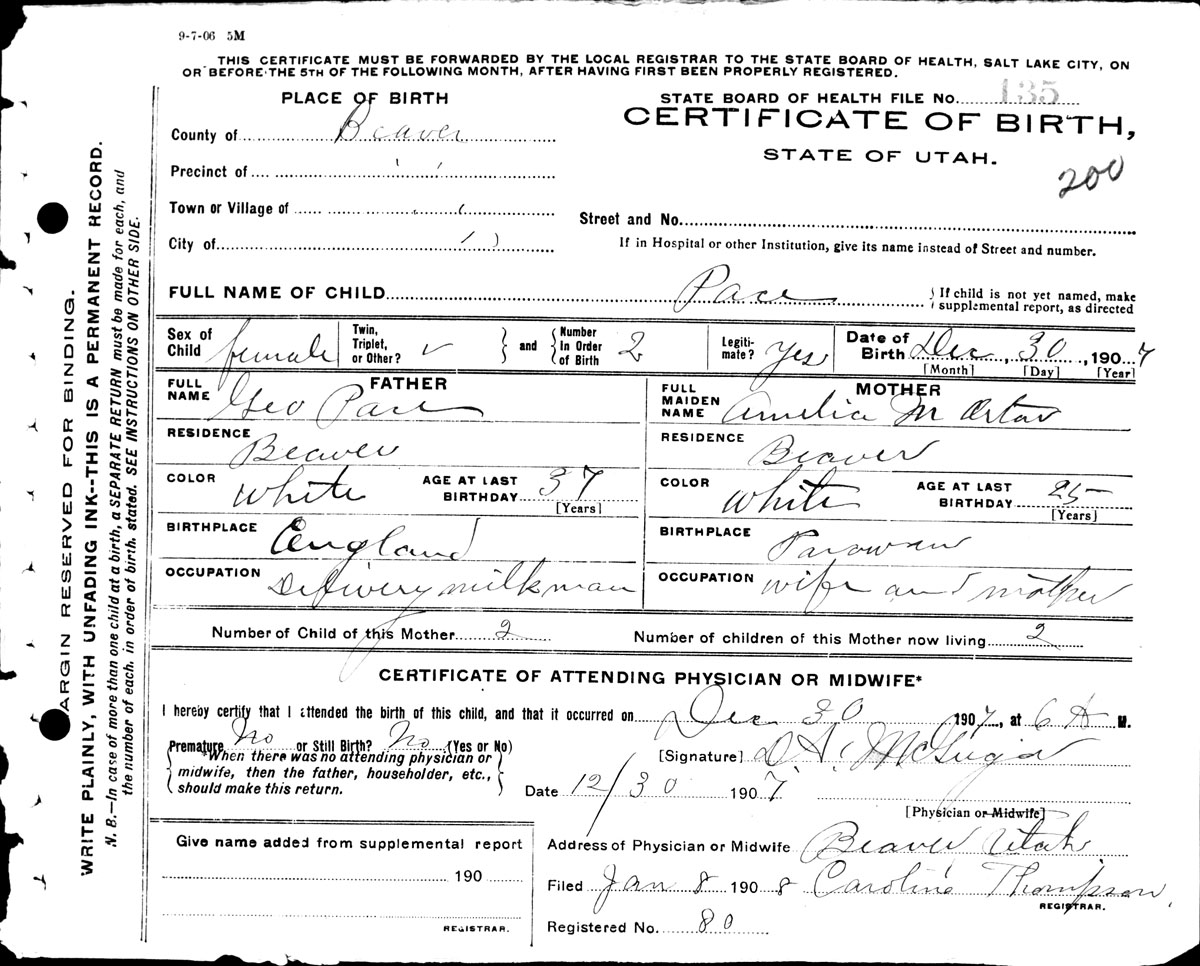 9-7-06 5M
THIS CERTIFICATE MUST BE FORWARDED BY THE LOCAL REGISTRAR TO THE STATE BOARD OF HEALTH, SALT LAKE CITY, ON
OR BEFORE THE 5TH OF THE FOLLOWING MONTH, AFTER HAVING FIRST BEEN PROPERLY REGISTERED.
PLACE OF BIRTH
STATE BOARD OF HEALTH FILE No. 135
County of Beaver
CERTIFICATE OF BIRTH,
STATE OF UTAH.
200
Precinct of " "
Town or Village of " "
Street and No.
City of " "
If in Hospital or other Institution, give its name instead of Street and number.
FULL NAME OF CHILD Pace
{ If child is not yet named, make
supplemental report, as directed
Sex of Child female
Twin, Triplet, or Other? ✓ } and { Number In Order of Birth 2
Legiti-mate? Yes
Date of Birth Dec 30, 1907
[Month] [Day] [Year]
FATHER
FULL NAME Geo Pace
RESIDENCE Beaver
COLOR White
AGE AT LAST BIRTHDAY 37
[Years]
BIRTHPLACE England
OCCUPATION Delivery milkman
MOTHER
FULL MAIDEN NAME Amelia M
RESIDENCE Beaver
COLOR White
AGE AT LAST BIRTHDAY 25
[Years]
BIRTHPLACE Parowan
OCCUPATION wife and mother
Number of Child of this Mother 2
Number of children of this Mother now living 2
CERTIFICATE OF ATTENDING PHYSICIAN OR MIDWIFE*
I hereby certify that I attended the birth of this child, and that it occurred on Dec 30 1907, at 6 A M.
Premature No or Still Birth? No (Yes or No)
[Signature] D A
{ *When there was no attending physician or
midwife, then the father, householder, etc.,
should make this return. }
Date 12/30 1907
[Physician or Midwife]
Give name added from supplemental report
190
REGISTRAR.
Address of Physician or Midwife Beaver Utah
Filed Jan 8 1908 Caroline Thompson,
REGISTRAR.
Registered No. 80
MARGIN RESERVED FOR BINDING.
WRITE PLAINLY, WITH UNFADING INK--THIS IS A PERMANENT RECORD.
N. B.—In case of more than one child at a birth, a SEPARATE RETURN must be made for each, and
the number of each, in order of birth, stated. SEE INSTRUCTIONS ON OTHER SIDE.